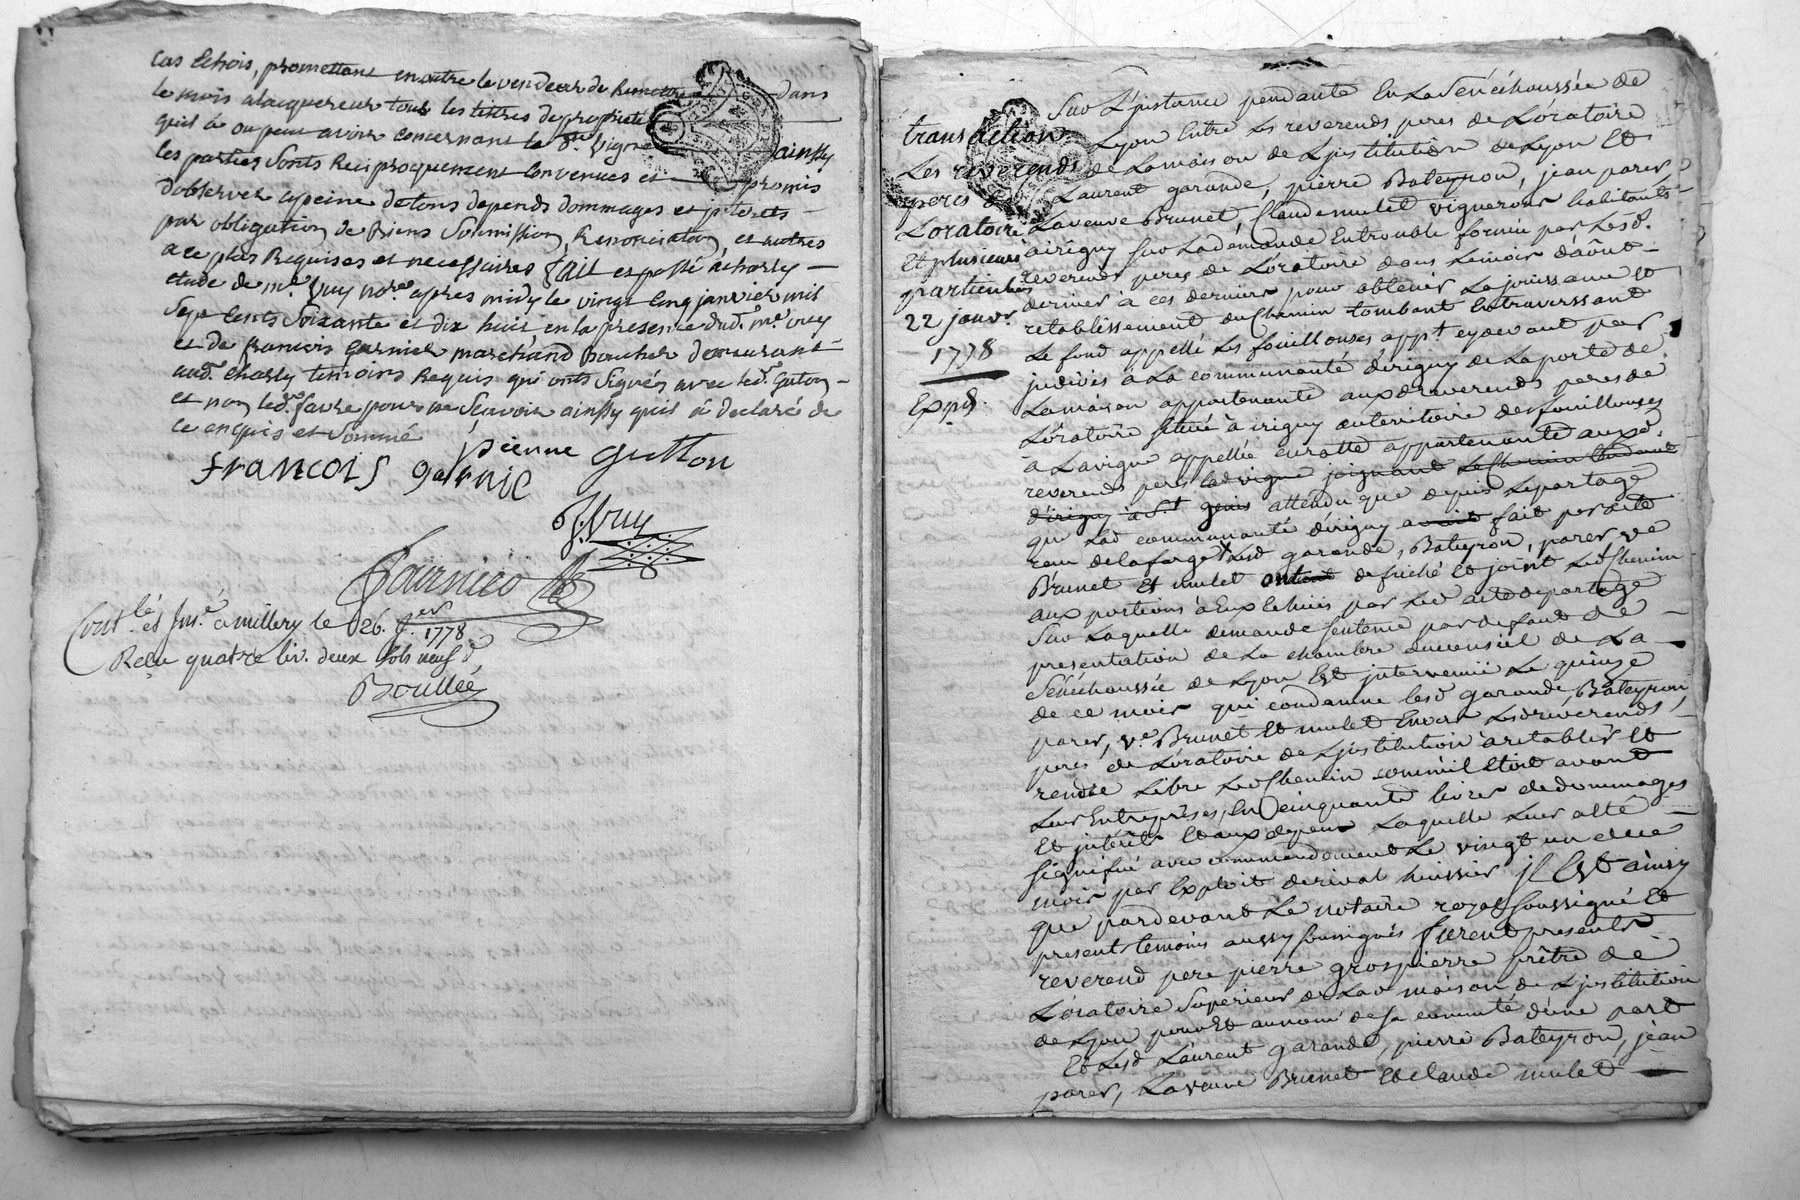 cas Echois, promettant en outre le vendeur de Remettre dans
le mois alacquereur tous les tittres de proprieté
quil a ou peut avoir concernant la de. Vigne ainssy
les parties sonts Reciproquement Convenues et promis
dobserver apeine detous depends dommages et jnterets
par obligation de Biens Soumission, Renonciation, et autres
a ce plus Requises et necessaires fait et passé a charly
etude de me. Vuy nore. apres midy le vingt cinq janvier mil
Sept Cents Soixante et dix huit en la presence dud. me. vuy
et de francois garnier marchand Boucher demeurant
aud. charly temoins Requis qui onts Signés avec led. Guton
et non led. favre pour ne Scavoir ainssy quil a declaré de
ce enquis et sommé
pienne gutton
francois garnie
Jvuy
Contlé. et Jnsé. a millery le 26. jer. 1778
Reçu quatre liv. deux sols neuf d.
Boullée
transaction
Les reverends
peres de
Loratoire
Et plusieurs
particuliers
22 janvr.
1778
Exped.
Sur L'jnstance pendante En La Sénéchaussée de
Lyon Entre Les reverends peres de L'oratoire
de Lamaison de L'jnstitution de Lyon Et
Laurent garande, pierre Bateyron, jean parer
Laveuve Brunet, Claude mulet vignerons habitants
à irigny sur La demande Entrouble formée par Lesd.
reverends peres de L'oratoire dans Le mois d'août
dernier à ces derniers pour obtenir La jouissance Et
retablissement du Chemin tombant Et traverssant
Le fond appellé Les fouillouses appt. cydevant par
jndivis à La communauté d'irigny de La porte de
Lamaison appartenante auxd reverends peres de
L'oratoire située à irigny au territoire des fouillouses
à La vigne appellée curatte appartenante auxd.
reverends peres Lad vigne joignant Le Chemin tendant
d'irigny à St. genis attendu que depuis Le partage
que Lad communauté dirigny avoit fait pardevant
Lesd garande, Bateyron, parer, ve
Brunet Et mulet ont defriché Et joint Led Chemin
aux portions à Eux Echües par Led acte de partage
Sur Laquelle demande Sentence par defaut de
presentation de La chambre du conseil de La
Sénéchaussée de Lyon Est jntervenüe Le quinze
de ce mois qui condamne lesd garande, Bateyron
parer, ve. Brunet Et mulet Envers Lesd reverends
peres de L'oratoire de L'jnstitution à retablir Et
rendre Libre Led Chemin comme il Etoit avant
Leur Entreprises, En Cinquante livres de dommages
Et jnterêts Et aux depens Laquelle Leur a été
signifiée avec commandement Le vingt un de ce
mois par Exploit de rival huissier jl Est ainsy
que pardevant Le notaire royal soussigné Et
present temoins aussy soussignés furent presents
reverend pere pierre grospierre prêtre de
L'oratoire Superieur de Lad maison de L'jnstitution
de Lyon pour Et au nom de sa communté d'une part
Et Lesd Laurent garande, pierre Bateyron, jean
parer, La veuve Brunet Et claude mulet